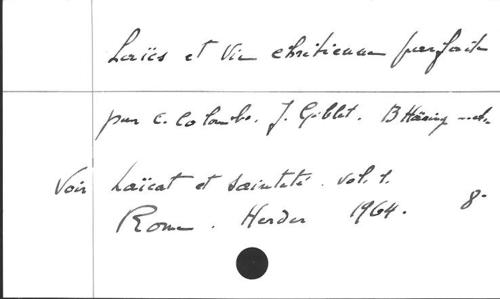 Laïcs et Vie chrétienne parfaite
par C. Colombo. J. Giblet. B Häring ...etc.
Voir Laïcat et sainteté. vol. 1.
Rome. Herder 1964. 8-